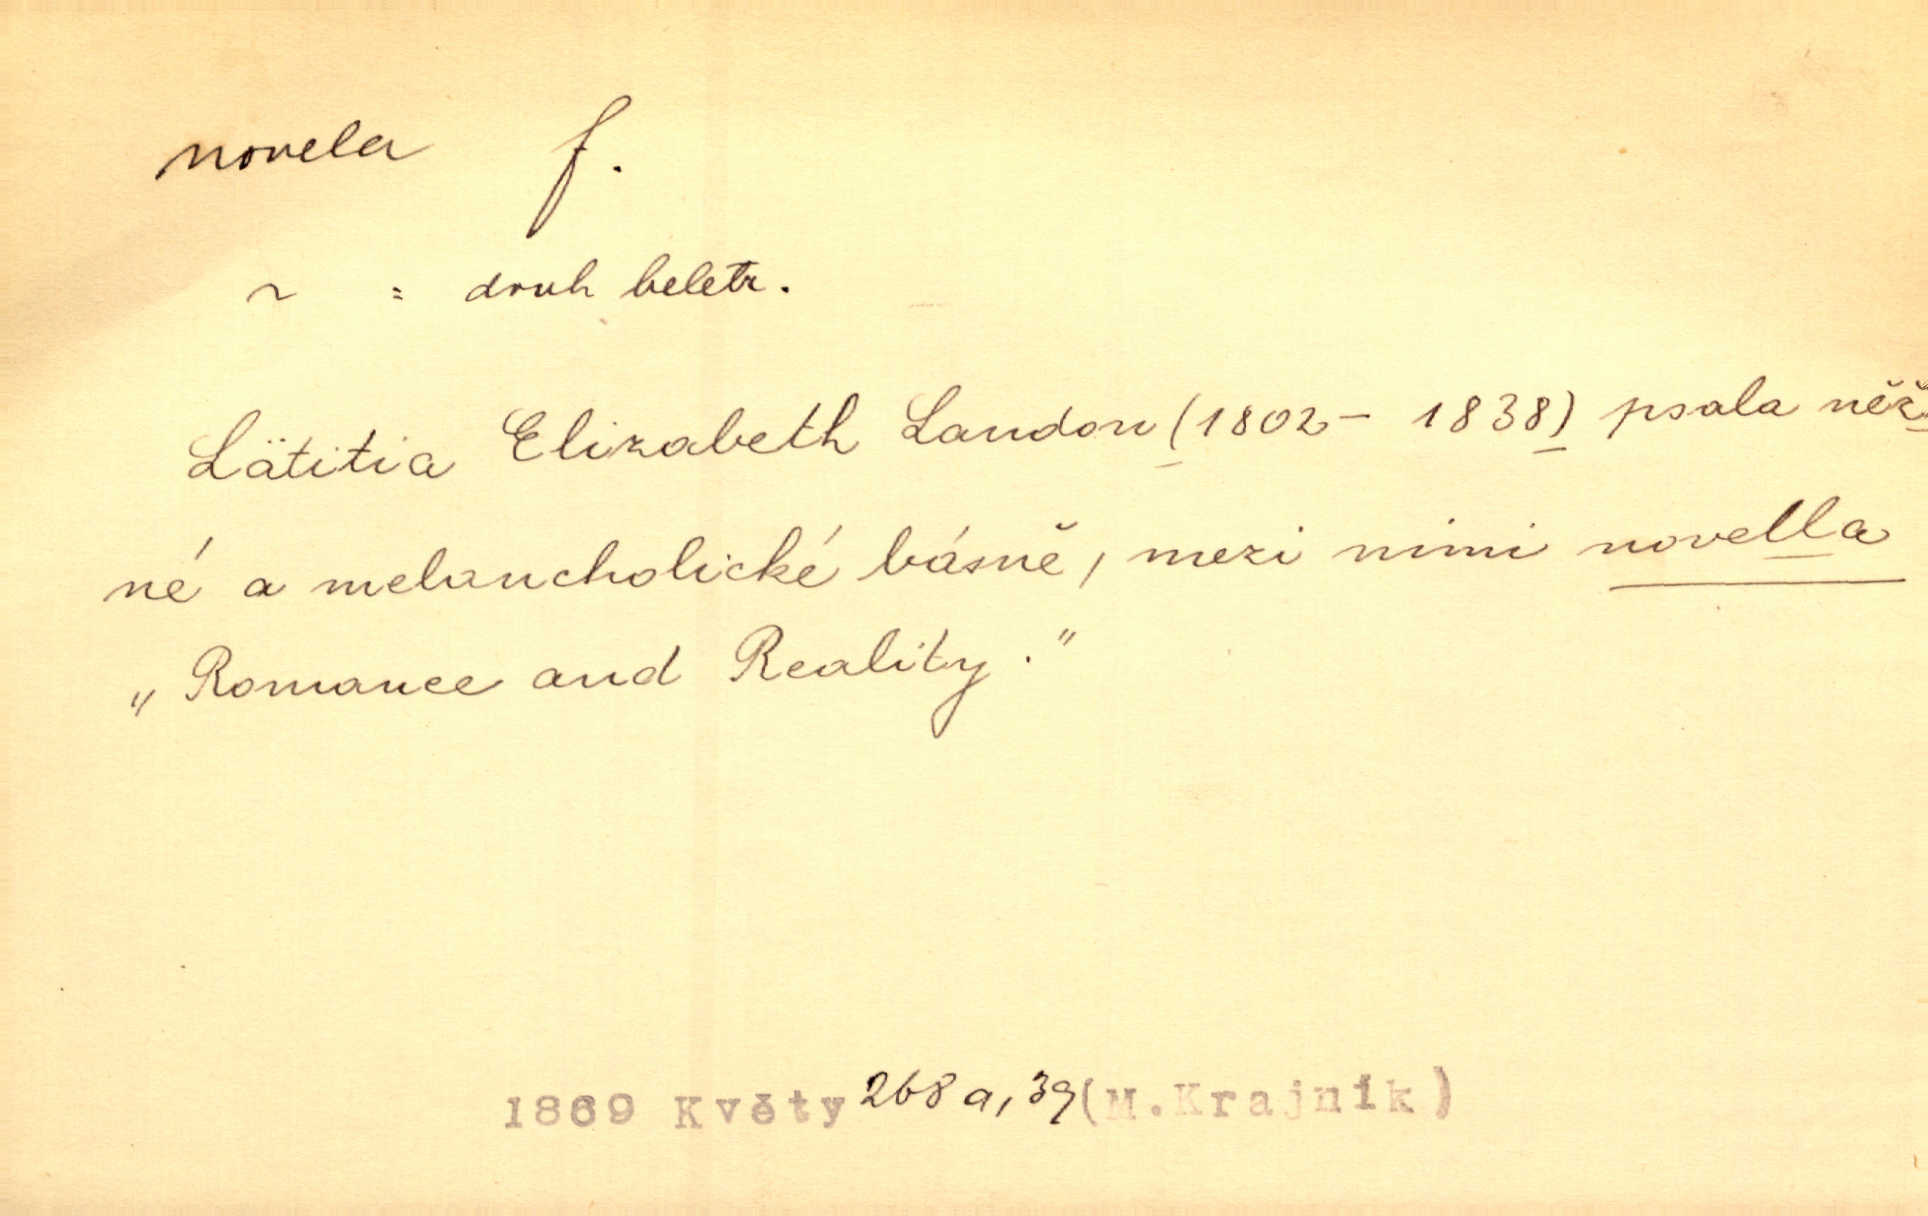 novela f.
~ = druh beletr.
Lätitia Elizabeth Landon (1802 - 1838) psala něž-
né a melancholické básně, mezi nimi novella
„Romance and Reality."
1869 Květy 268 a, 39 (M. Krajník)